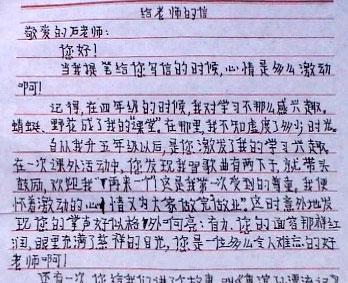 给老师的信
敬爱的石老师:
您好!
当我提笔给您写信的时候,心情是多么激动
啊!
记得,在四年级的时候,我对学习不那么感兴趣。
蜻蜓、野花成了我的“课堂”。在那里,我不知虚度了多少时光。
自从我升五年级以后,是您激发了我的学习兴趣。
在一次课外活动中,您发现我唱歌曲有两下子,就带头
鼓励,欢迎我“再来一个”这是我第一次受到的尊重。我便
怀着激动的心情又为大家做完做业”这时意外地发
现您的掌声好似格外响亮:有力,您的面容那样红
润,眼里充满了慈祥的目光,您是一位多么令人难忘的好
老师啊!
还有一次,您给我们讲了个故事,叫